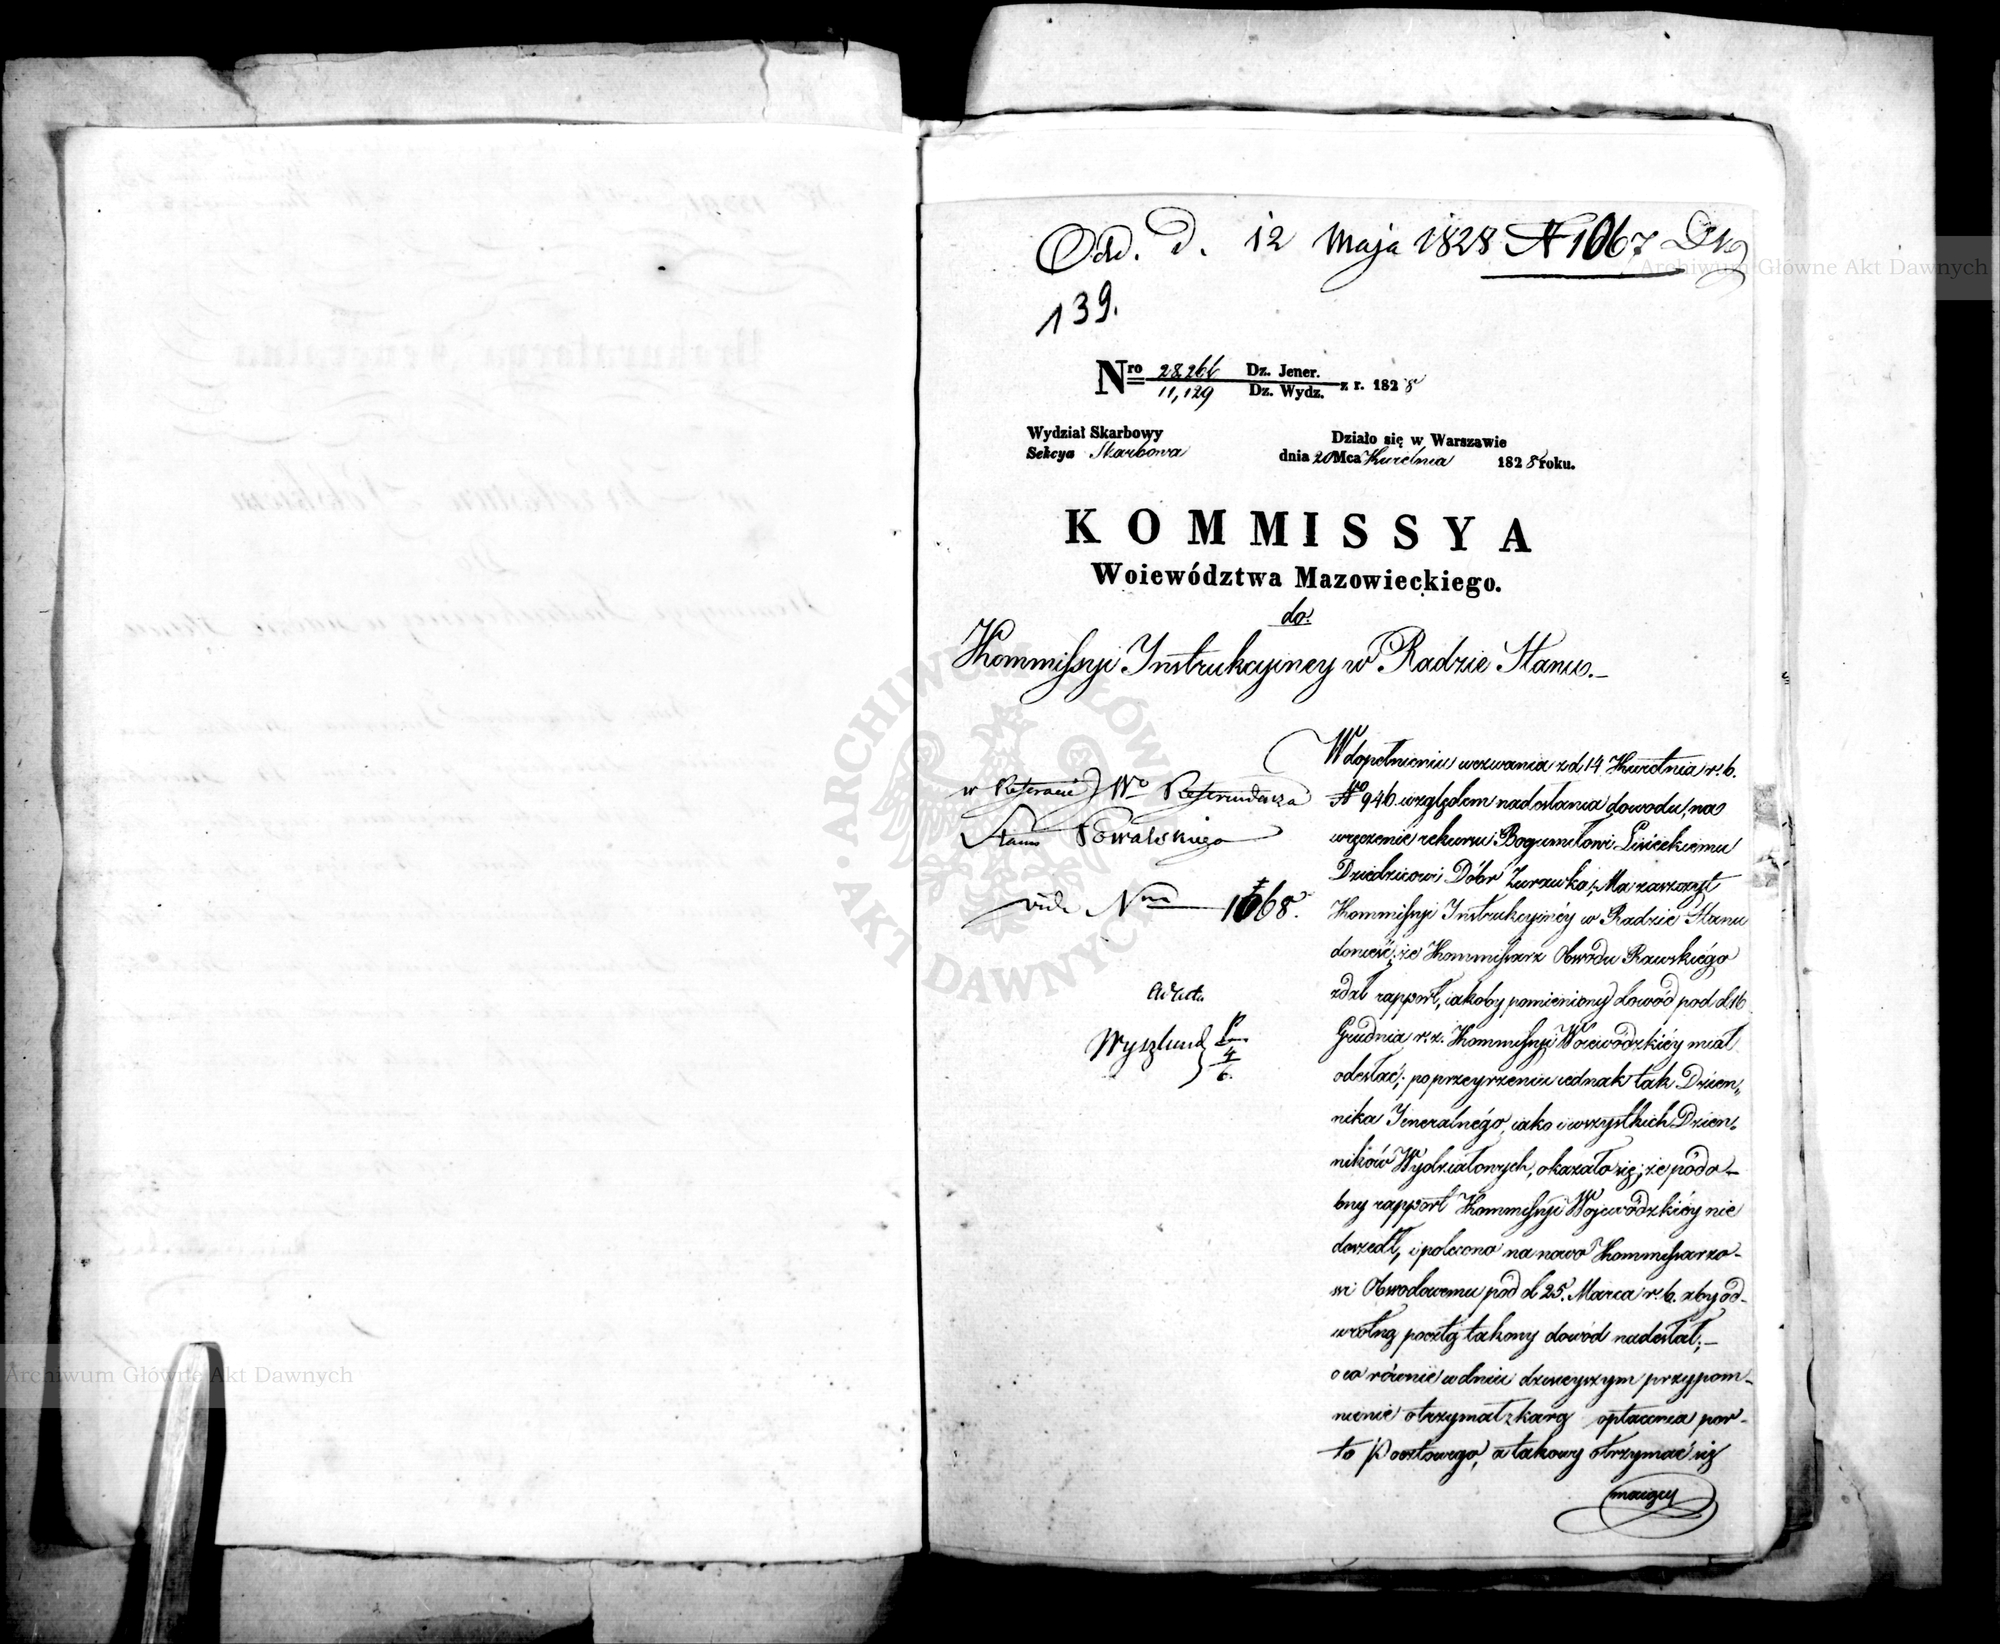 Odd. D. 12 Maja 1828 N 1067
139.
Nro 28,266 Dz. Jener.
11,129 Dz. Wydz. z r. 1828
Wydział Skarbowy
Sekcya Skarbowa
Działo się w Warszawie
dnia 20 Mca Kwietnia 1828 roku.
KOMMISSYA
Woiewództwa Mazowieckiego.
do
Kommissyi Instrukcyiney w Radzie Stanu.
w Referacie Wo Referendarza
Stanu Kowalskiego
vide Nrm 1068.
ad acta
W dopełnieniu wezwania z d 14 Kwietnia r. b.
No 946 względem nadesłania dowodu, na
wręczenie rekursu Bogumiłowi Lisieckiemu
Dziedzicowi Dóbr Zurawka; Ma zaszczyt
Kommissyi Instrukcyinéy w Radzie Stanu
donieść; że Kommissarz Obwodu Rawskiégo
zdał rapport, iakoby pomieniony dowód pod d. 16
Grudnia r. z. Kommissyi Woiewódzkiéy miał
odesłać; po przeyrzeniu iednak tak Dzien„
nika Jeneralnégo, iako i wszystkich Dzien„
ników Wydziałowych, okazało się; że podo-
bny rapport Kommissyi Wojewódzkiéy nie
doszedł, i polecono na nowo Kommissarzo-
wi Obwodowemu pod d 25. Marca r. b. aby od-
wrotną pocztą takowy dowód nadesłał;
oco równie w dniu dzisieyszym przypom-
nienie otrzymał z karą opłacenia por-
to Pocztowego, a takowy otrzymać się
maiący
Archiwum Główne Akt Dawnych
Archiwum Główne Akt Dawnych
ARCHIWUM GŁÓWNE AKT DAWNYCH